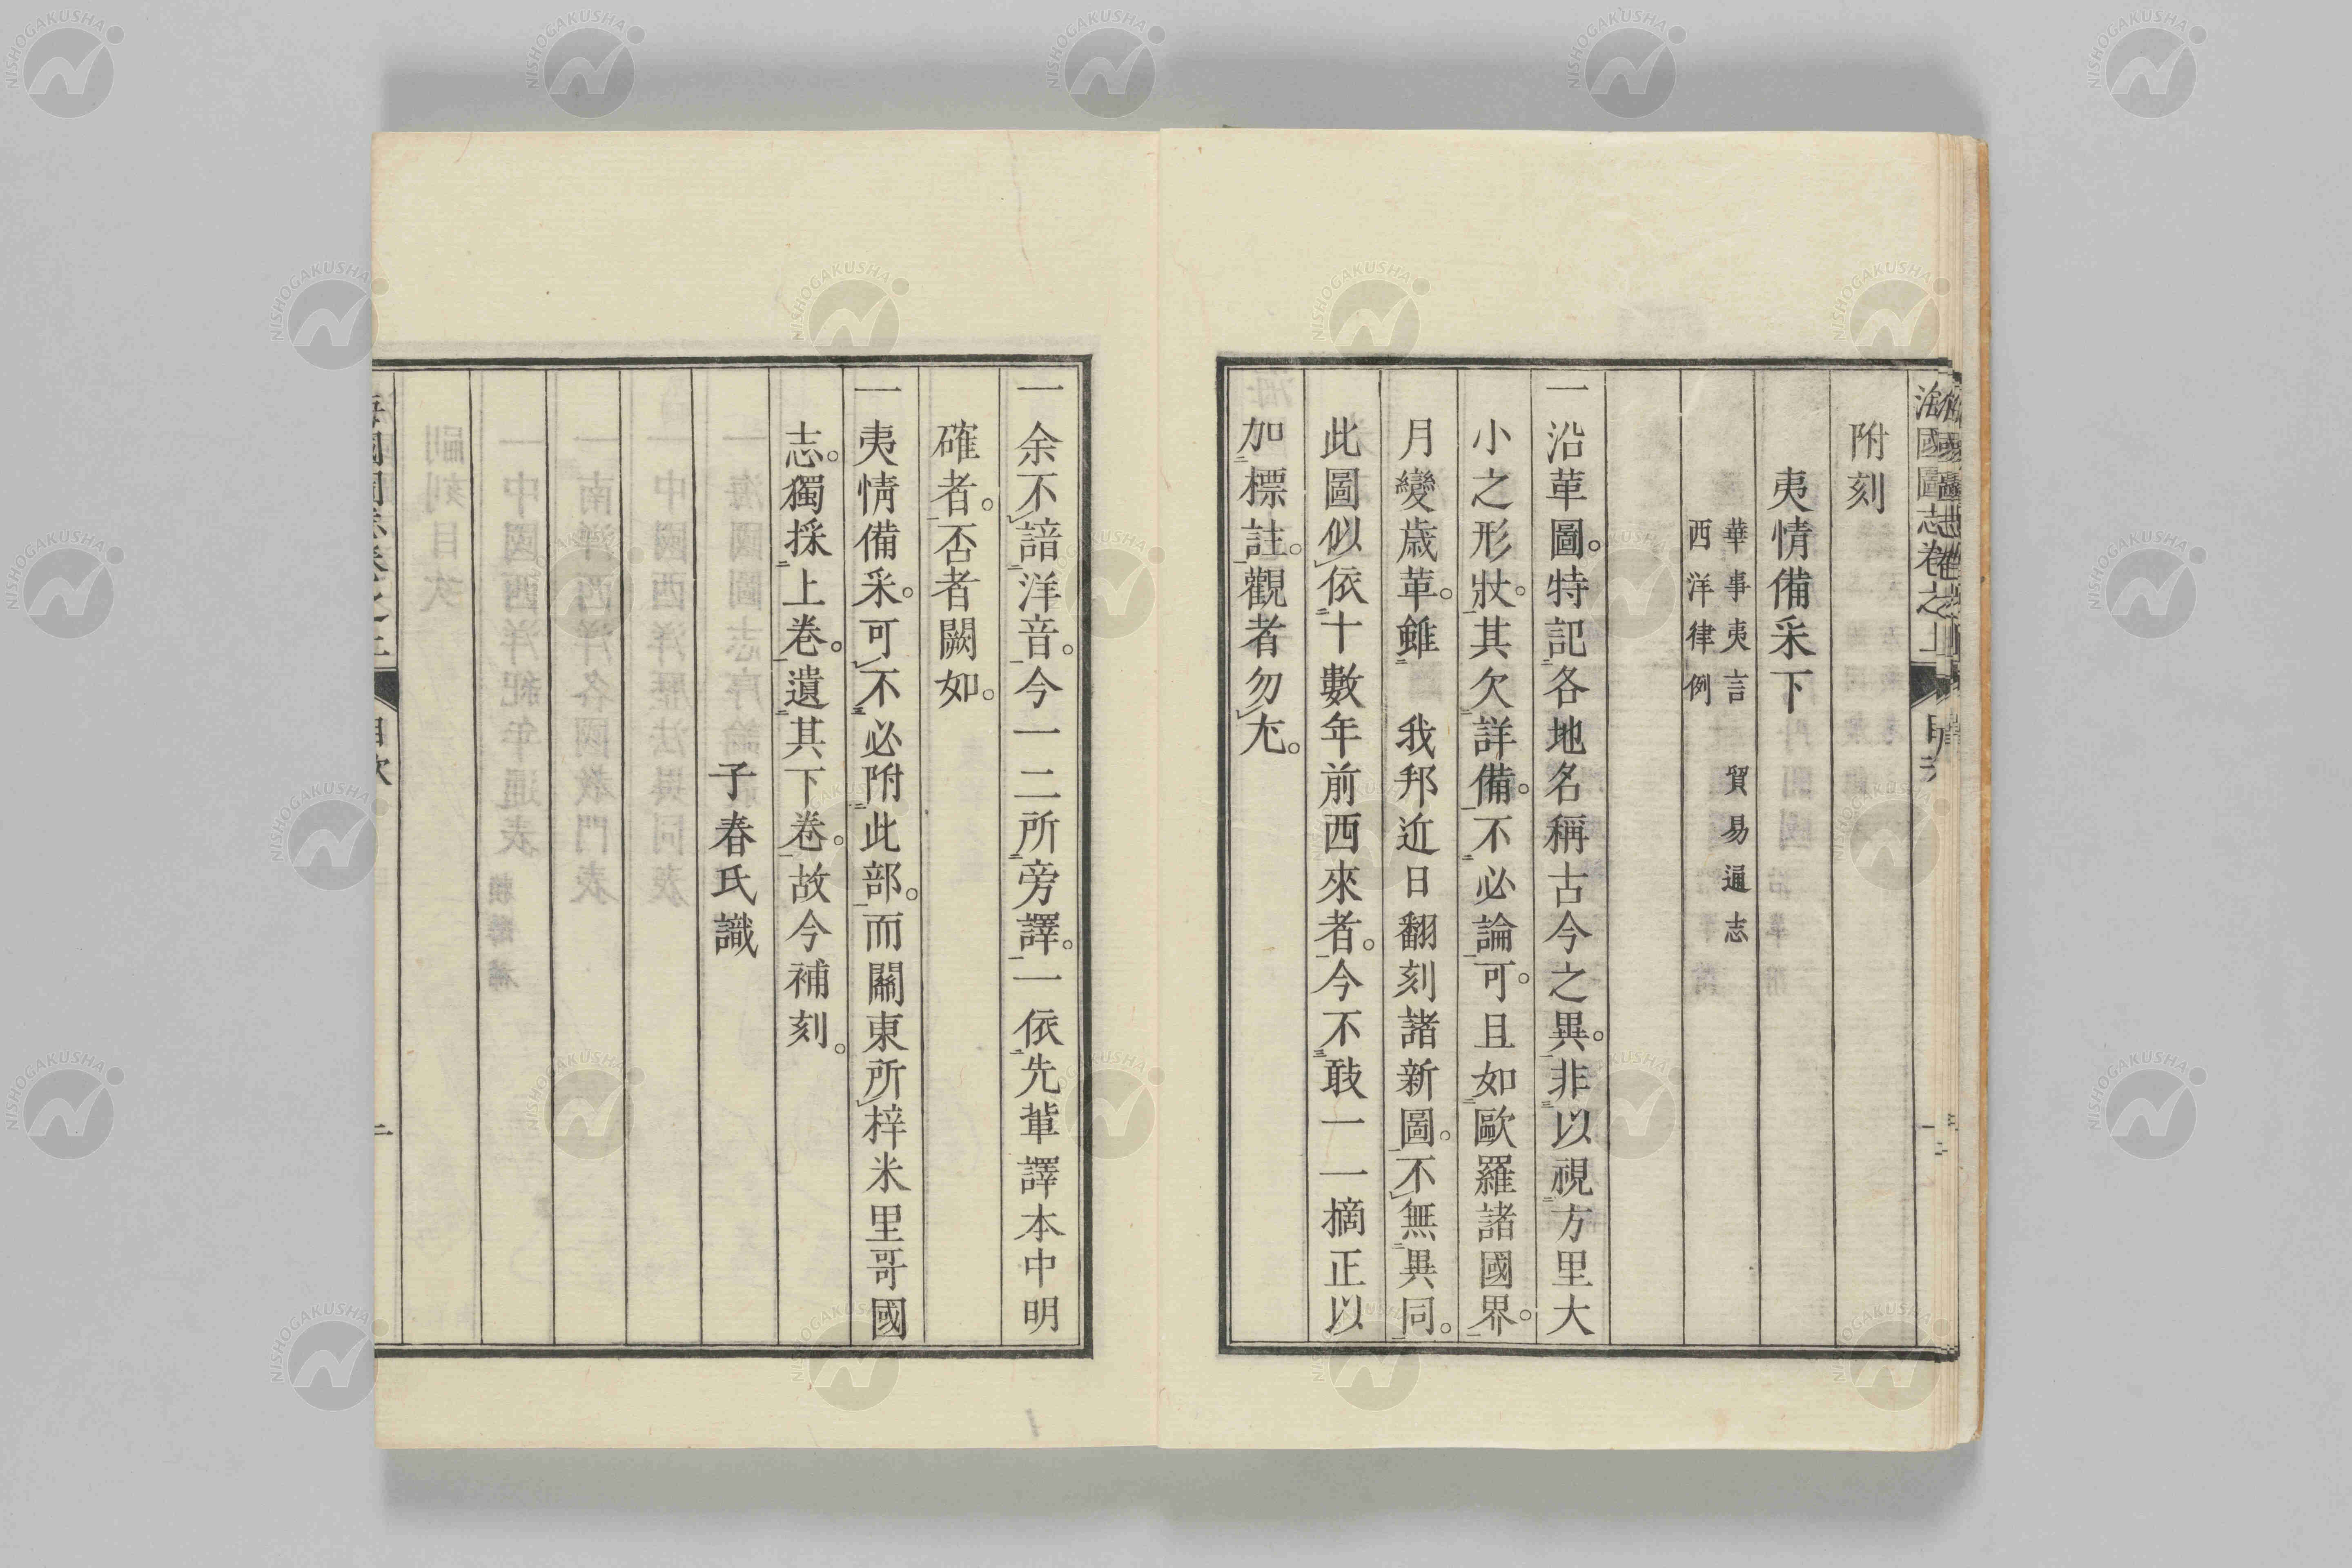 海國圖志卷之上 目次
附刻
夷情備采下
華事夷言 貿易通志
西洋律例
一沿革圖。特記各地名稱古今之異。非以視方里大
小之形狀。其欠詳備。不必論可。且如歐羅諸國界。
月變歲革。雖 我邦近日翻刻諸新圖。不無異同。
此圖似依十數年前西來者。今不敢一一摘正以
加標註。觀者勿尤。
一余不諳洋音。今一二所旁譯。一依先輩譯本中明
確者。否者闕如。
一夷情備采。可不必附此部。而關東所梓米里哥國
志。獨採上卷。遺其下卷。故今補刻。
子春氏識
NISHOGAKUSHA